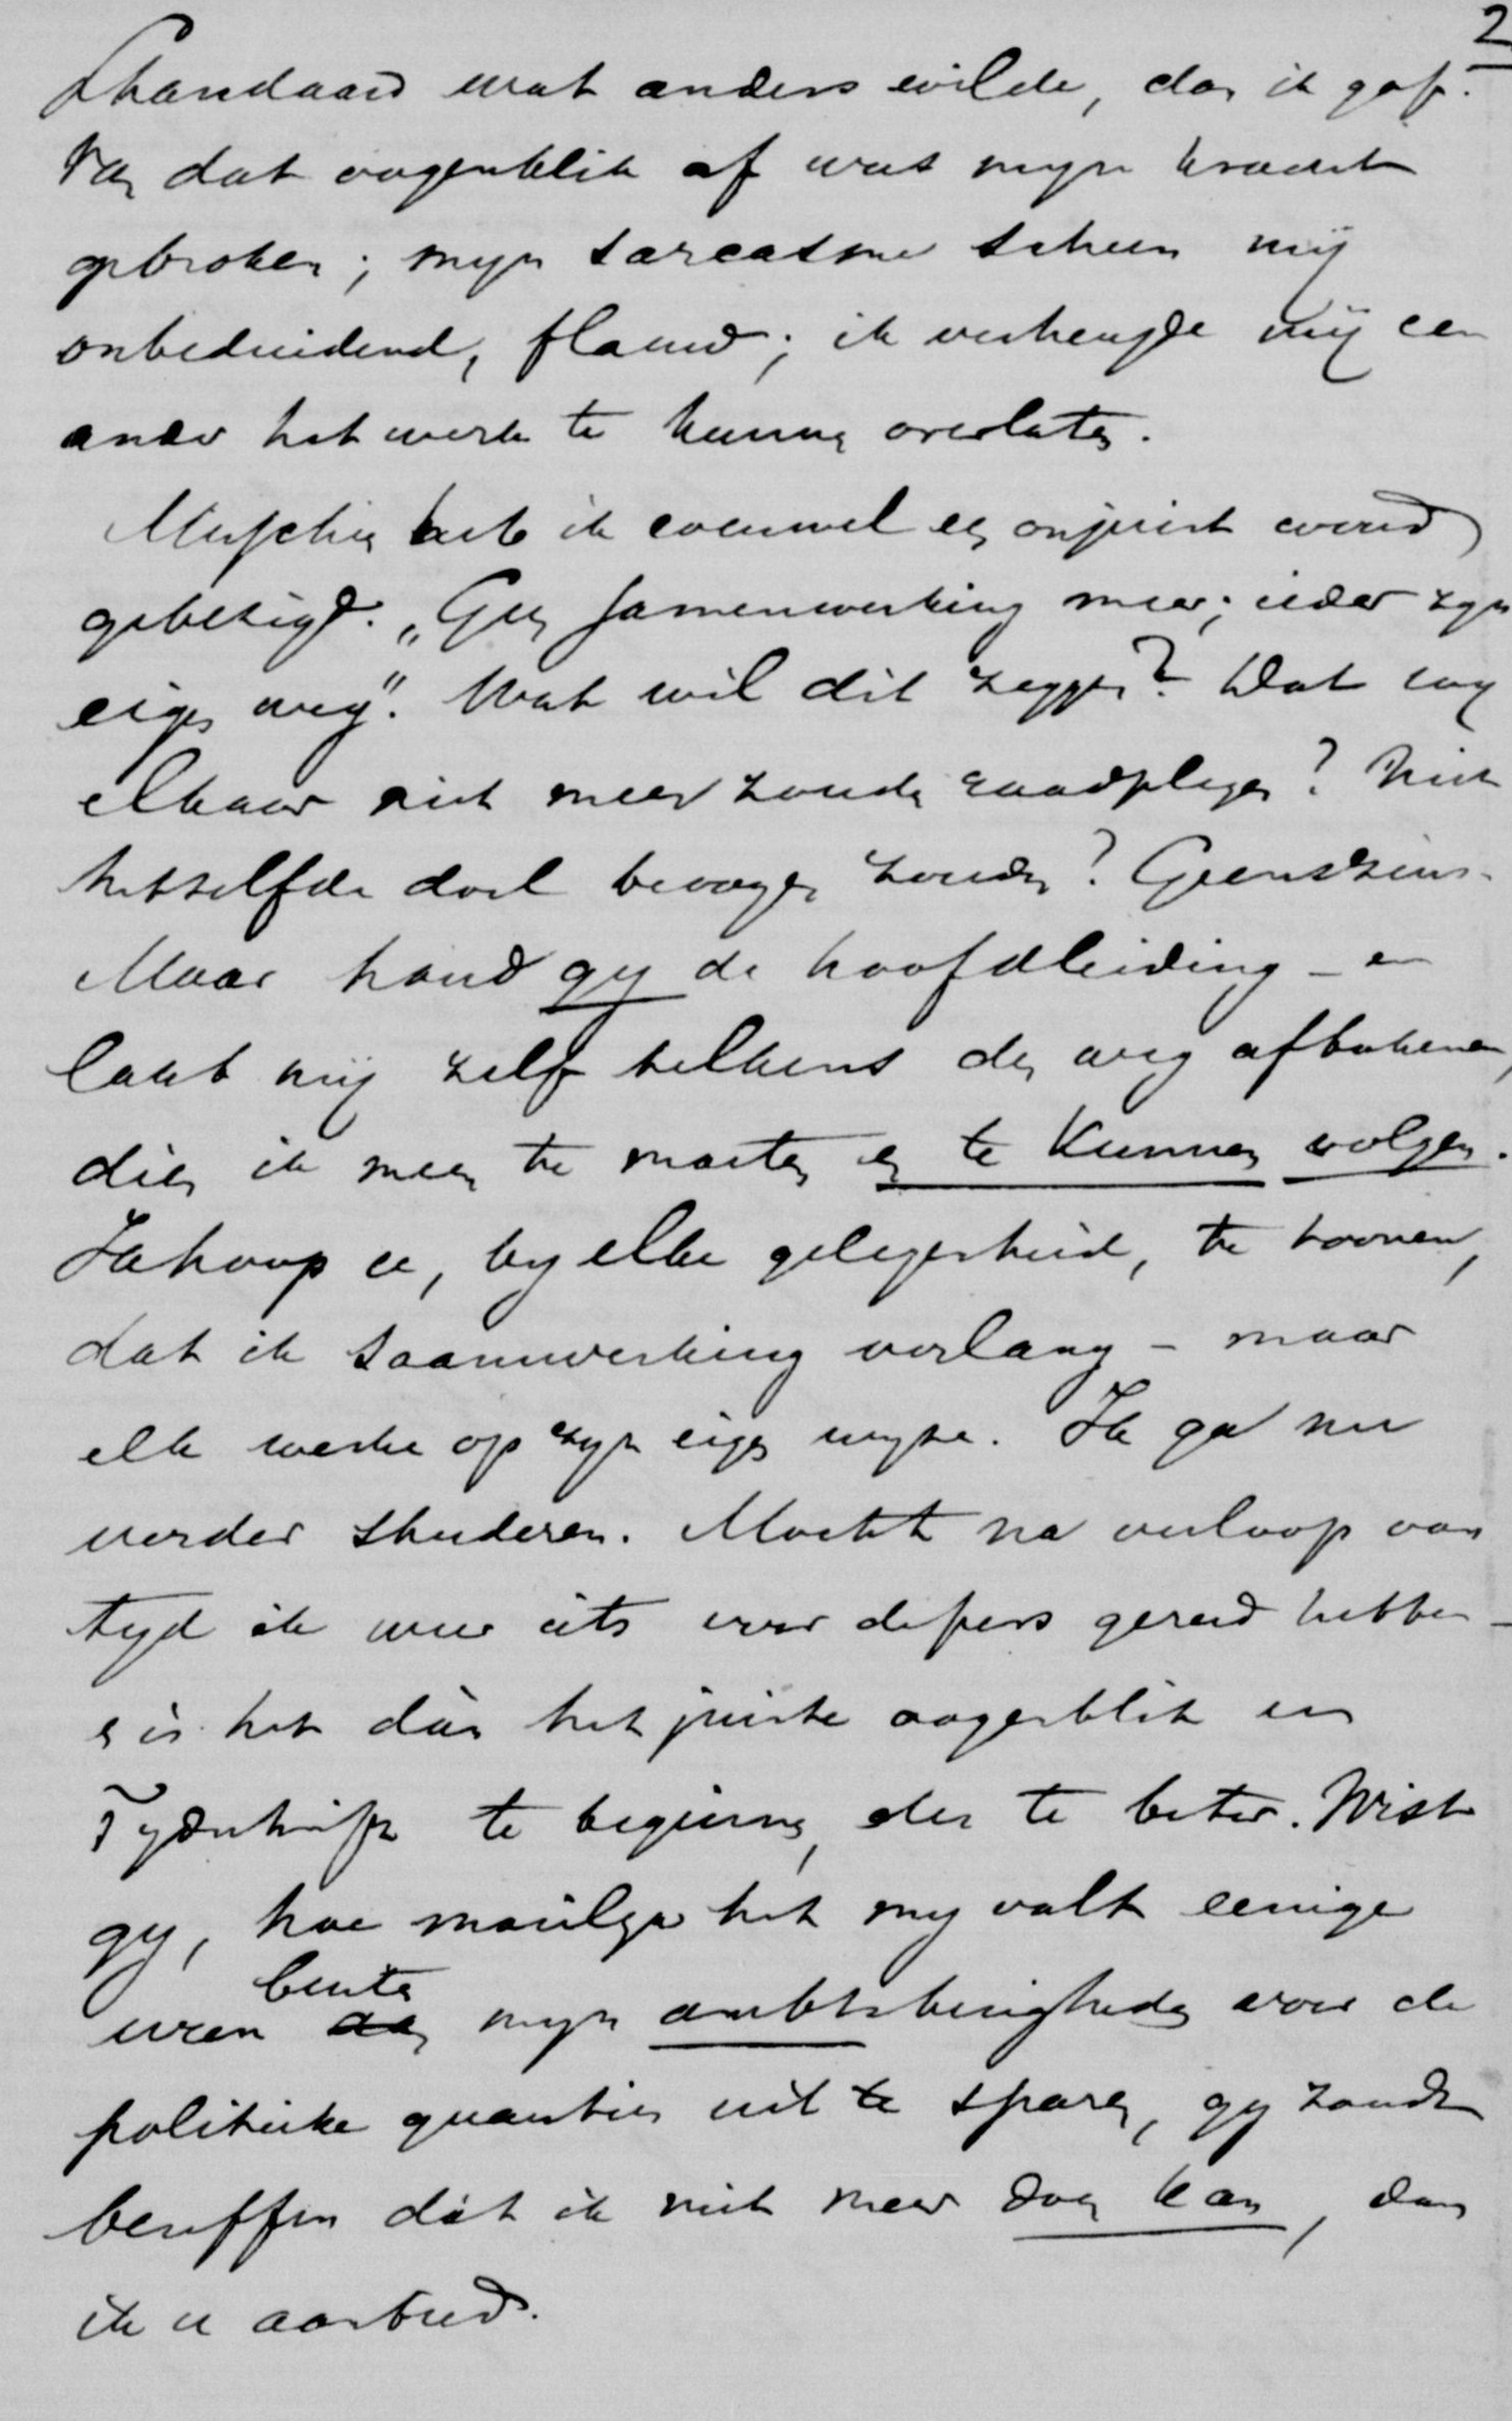 2
Standaard wat anders wilde, dan ik gaf.
Van dat oogenblik af was myn kracht
gebroken; myn sarcasme scheen mij
onbeduidend, flauw; ik verheugde mij een
ander het werk te kunnen overlaten.
Misschien heb ik evenwel een onjuist woord
gebezigd. „Geen samenwerking meer; ieder zyn
eigen weg". Wat wil dit zeggen? Dat wy
elkaar niet meer zouden raadplegen? Niet
hetzelfde doel beoogen zouden? Geenszins.
Maar houd gy de hoofdleiding – en
laat mij zelf telkens den weg afbakenen,
dien ik meen te moeten en te kunnen volgen.
Ik hoop u, by elke gelegenheid, te toonen,
dat ik saamwerking verlang – maar
elk werke op zyn eigen wyze. Ik ga nu
verder studeren. Mocht na verloop van
tyd ik weer iets voor de pers gereed hebben –
en is het dàn het juiste oogenblik een
Tydschrift te beginnen, des te beter. Wist
gy, hoe moeilyk het my valt eenige
uren buiten myn ambtsbezigheden voor de
politieke quaesties uit te sparen, gy zoudt
beseffen dat ik niet meer doen kan, dan
ik u aanbied.